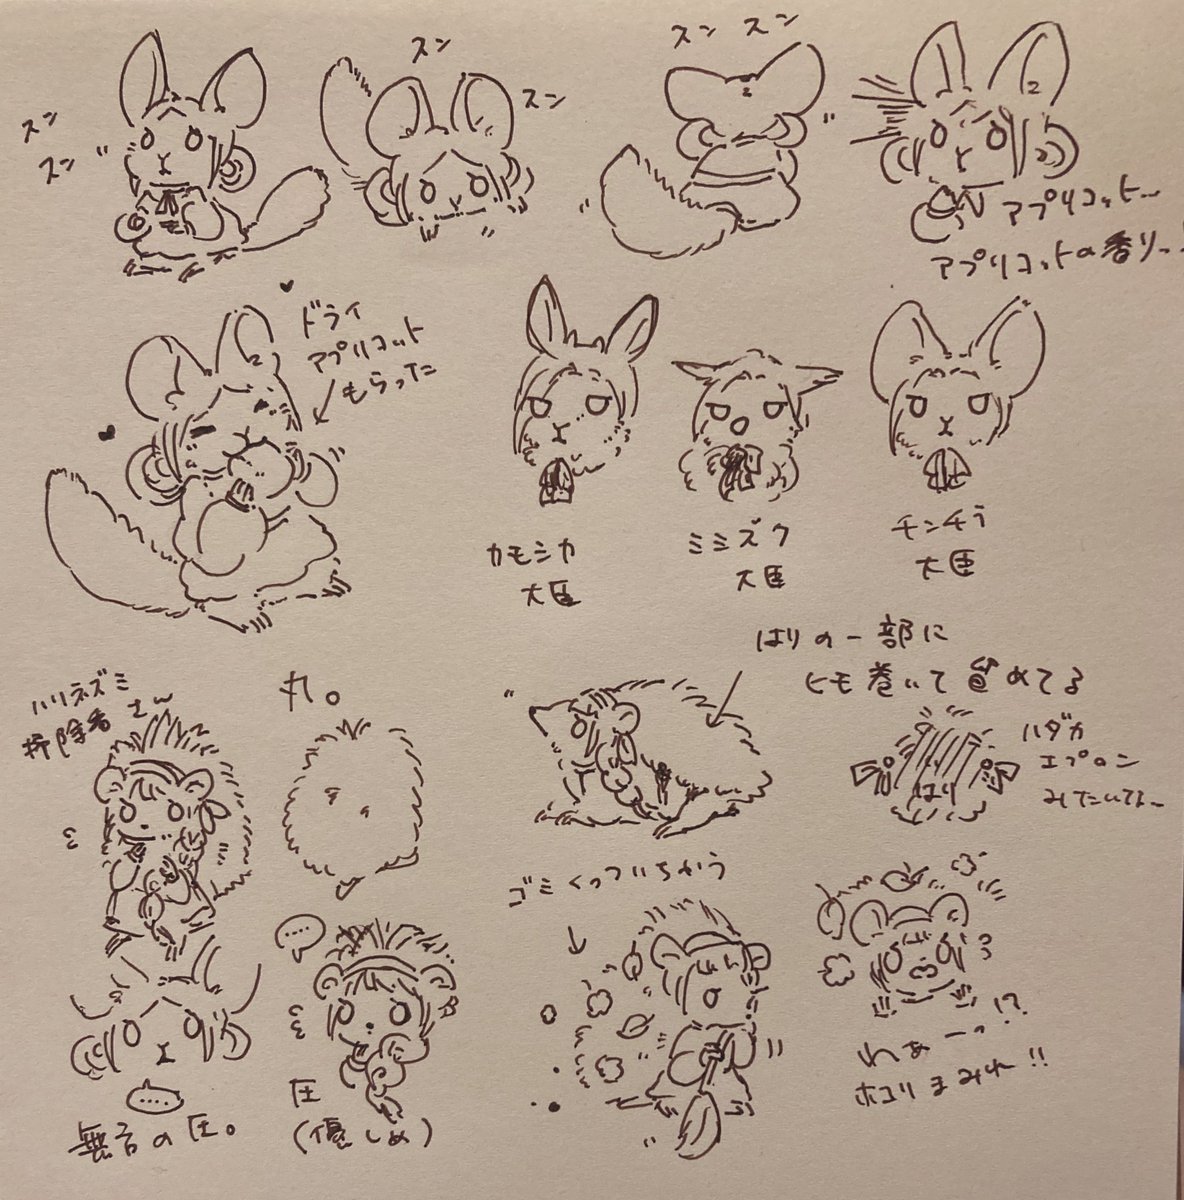 スン
スン
スン
スン
スン スン
アプリコット…
アプリコットの香りっ…!
ドライ
アプリコット
もらった
カモシカ
大臣
ミミズク
大臣
チンチラ
大臣
ハリネズミ
掃除番さん
丸。
はりの一部に
ヒモ巻いて留めてる
はり
ハダカ
エプロン
みたいでよー
ゴミくっついちゃう
わぁーっ!?
ホコリまみれ!!
....
無言の圧。
....
圧
(優しめ)